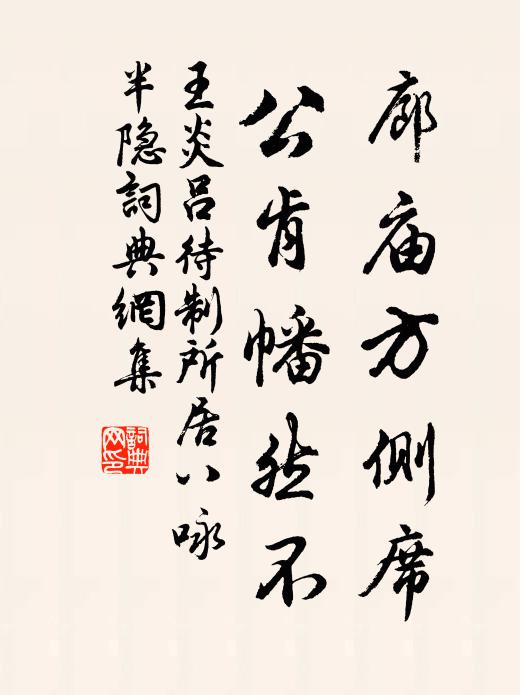 廊庙方侧席
公肯幡然不
王炎吕待制所居八咏
半隐詞典網集
詞典网印